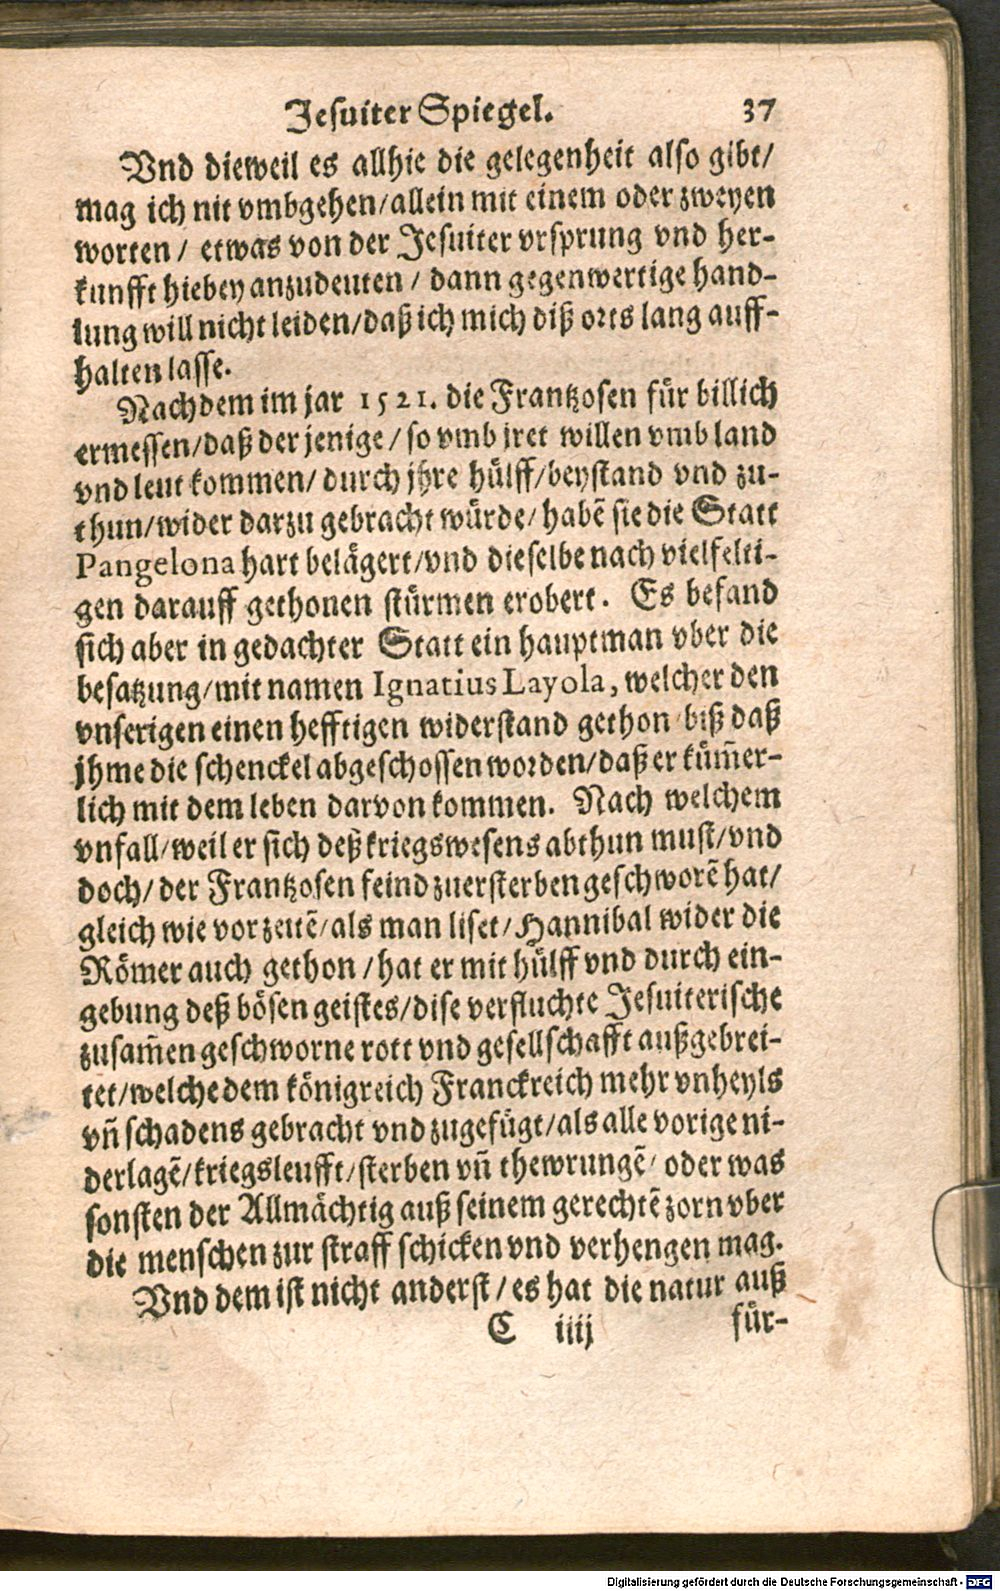 Jesuiter Spiegel. 37
Vnd dieweil es allhie die gelegenheit also gibt/
mag ich nit vmbgehen/allein mit einem oder zweyen
worten/ etwas von der Jesuiter vrsprung vnd her-
kunfft hiebey anzudeuten / dann gegenwertige hand-
lung will nicht leiden/daß ich mich diß orts lang auff-
halten lasse.
Nachdem im jar 1521. die Frantzosen für billich
ermessen/daß der jenige/ so vmb jret willen vmb land
vnd leut kommen/ durch jhre hülff/beystand vnd zu-
thun/wider darzu gebracht würde/ habẽ sie die Statt
Pangelona hart belägert/vnd dieselbe nach vielfelti-
gen darauff gethonen stürmen erobert. Es befand
sich aber in gedachter Statt ein hauptman vber die
besatzung/mit namen Ignatius Layola, welcher den
vnserigen einen hefftigen widerstand gethon/biß daß
jhme die schenckel abgeschossen worden/daß er küm̃er-
lich mit dem leben darvon kommen. Nach welchem
vnfall/weil er sich deß kriegswesens abthun must/vnd
doch/ der Frantzosen feind zuersterben geschworẽ hat/
gleich wie vor zeitẽ/als man liset/Hannibal wider die
Römer auch gethon /hat er mit hülff vnd durch ein-
gebung deß bösen geistes/dise verfluchte Jesuiterische
zusam̃en geschworne rott vnd gesellschafft außgebrei-
tet/welche dem königreich Franckreich mehr vnheyls
vñ schadens gebracht vnd zugefügt/als alle vorige ni-
derlagẽ/kriegsleufft/sterben vñ thewrungẽ/ oder was
sonsten der Allmächtig auß seinem gerechtẽ zorn vber
die menschen zur straff schicken vnd verhengen mag.
Vnd dem ist nicht anderst/es hat die natur auß
C iiij für-
Digitalisierung gefördert durch die Deutsche Forschungsgemeinschaft - DFG